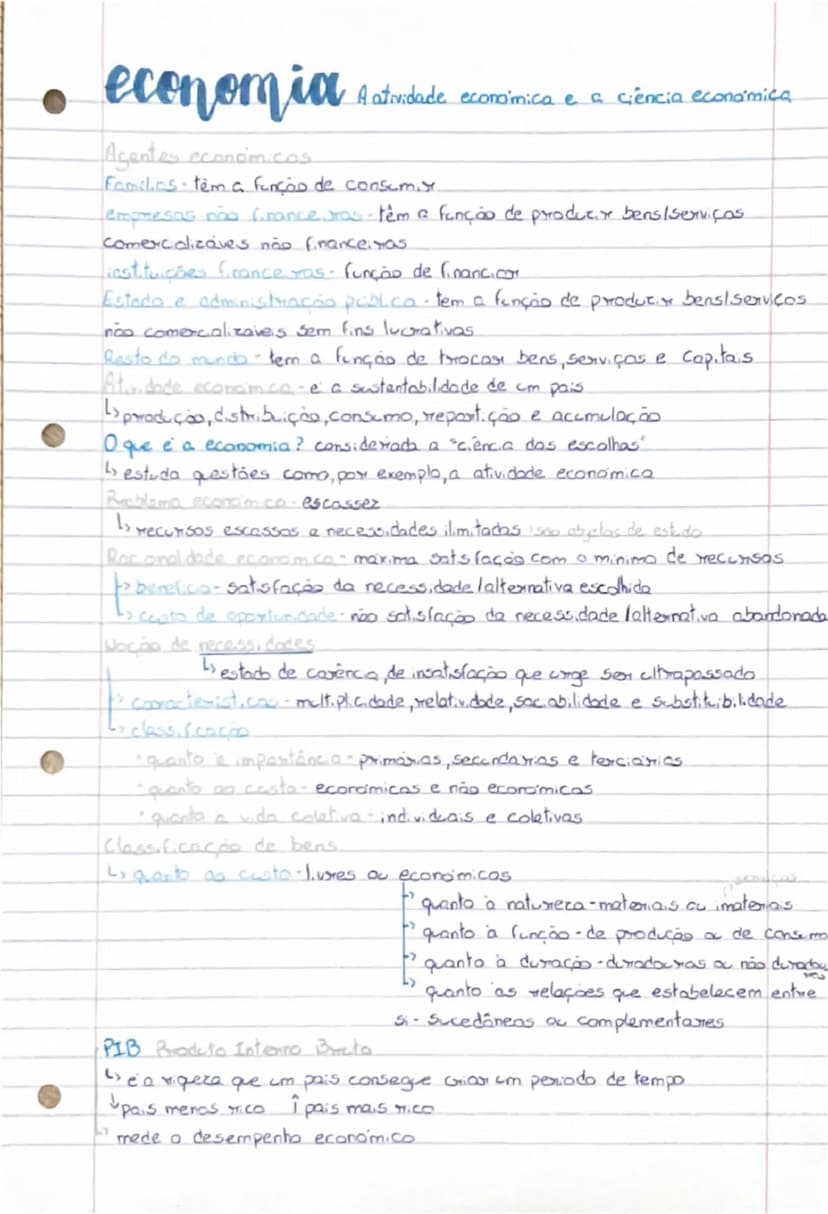 economia A atividade económica e a ciência económica
Agentes económicos
Famílias - têm a função de consumir
empresas não financeiras - têm a função de produzir bens/serviços
comercalizáveis não financeiras
instituições financeiras - função de financiar
Estado e administração pública - tem a função de produzir bens/serviços
não comercalizaveis sem fins lucrativos
Resto do mundo - tem a função de trocar bens, serviços e capitais
Atividade económica - é a sustentabilidade de um país
↳ produção, distribuição, consumo, repartição e acumulação
O que é a economia? considerada a "ciência das escolhas"
↳ estuda questões como, por exemplo, a atividade económica
Problema económico - escassez
↳ recursos escassos a necessidades ilimitadas são objetos de estudo
Racionalidade económica - máxima satisfação com o mínimo de recursos
↳ benefício - satisfação da necessidade/alternativa escolhida
↳ custo de oportunidade - não satisfação da necessidade/alternativa abandonada
Noção de necessidades
↳ estado de carência, de insatisfação que urge ser ultrapassado
↳ características - multiplicidade, relatividade, saciabilidade e substituibilidade
↳ classificação
• quanto à importância - primárias, secundárias e terciárias
• quanto ao custo - económicas e não económicas
• quanto à vida coletiva - individuais e coletivas
Classificação de bens
↳ quanto ao custo - livres ou económicos
serviços
↳ quanto à natureza - materiais ou imateriais
↳ quanto à função - de produção ou de consumo
↳ quanto à duração - duradouras ou não duradouras
↳ quanto às relações que estabelecem entre
si - sucedâneas ou complementares
PIB Produto Interno Bruto
↳ é a riqueza que um país consegue criar um período de tempo
↓ país menos rico ↑ país mais rico
↳ mede o desempenho económico